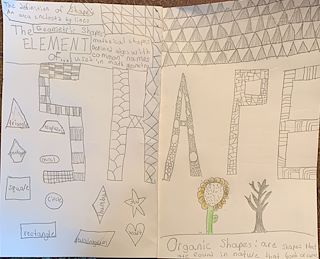 The definition of Shape:
An area enclosed by lines
The Geometric Shapes
ELEMENT
OF...
mathematical shapes
defined edges with
common names
used in math geometry
SHAPE
triangle
trapezoid
pentagon
oval
square
circle
rhombus
star
heart
rectangle
parallelogram
Organic Shapes: are shapes that
are found in nature that